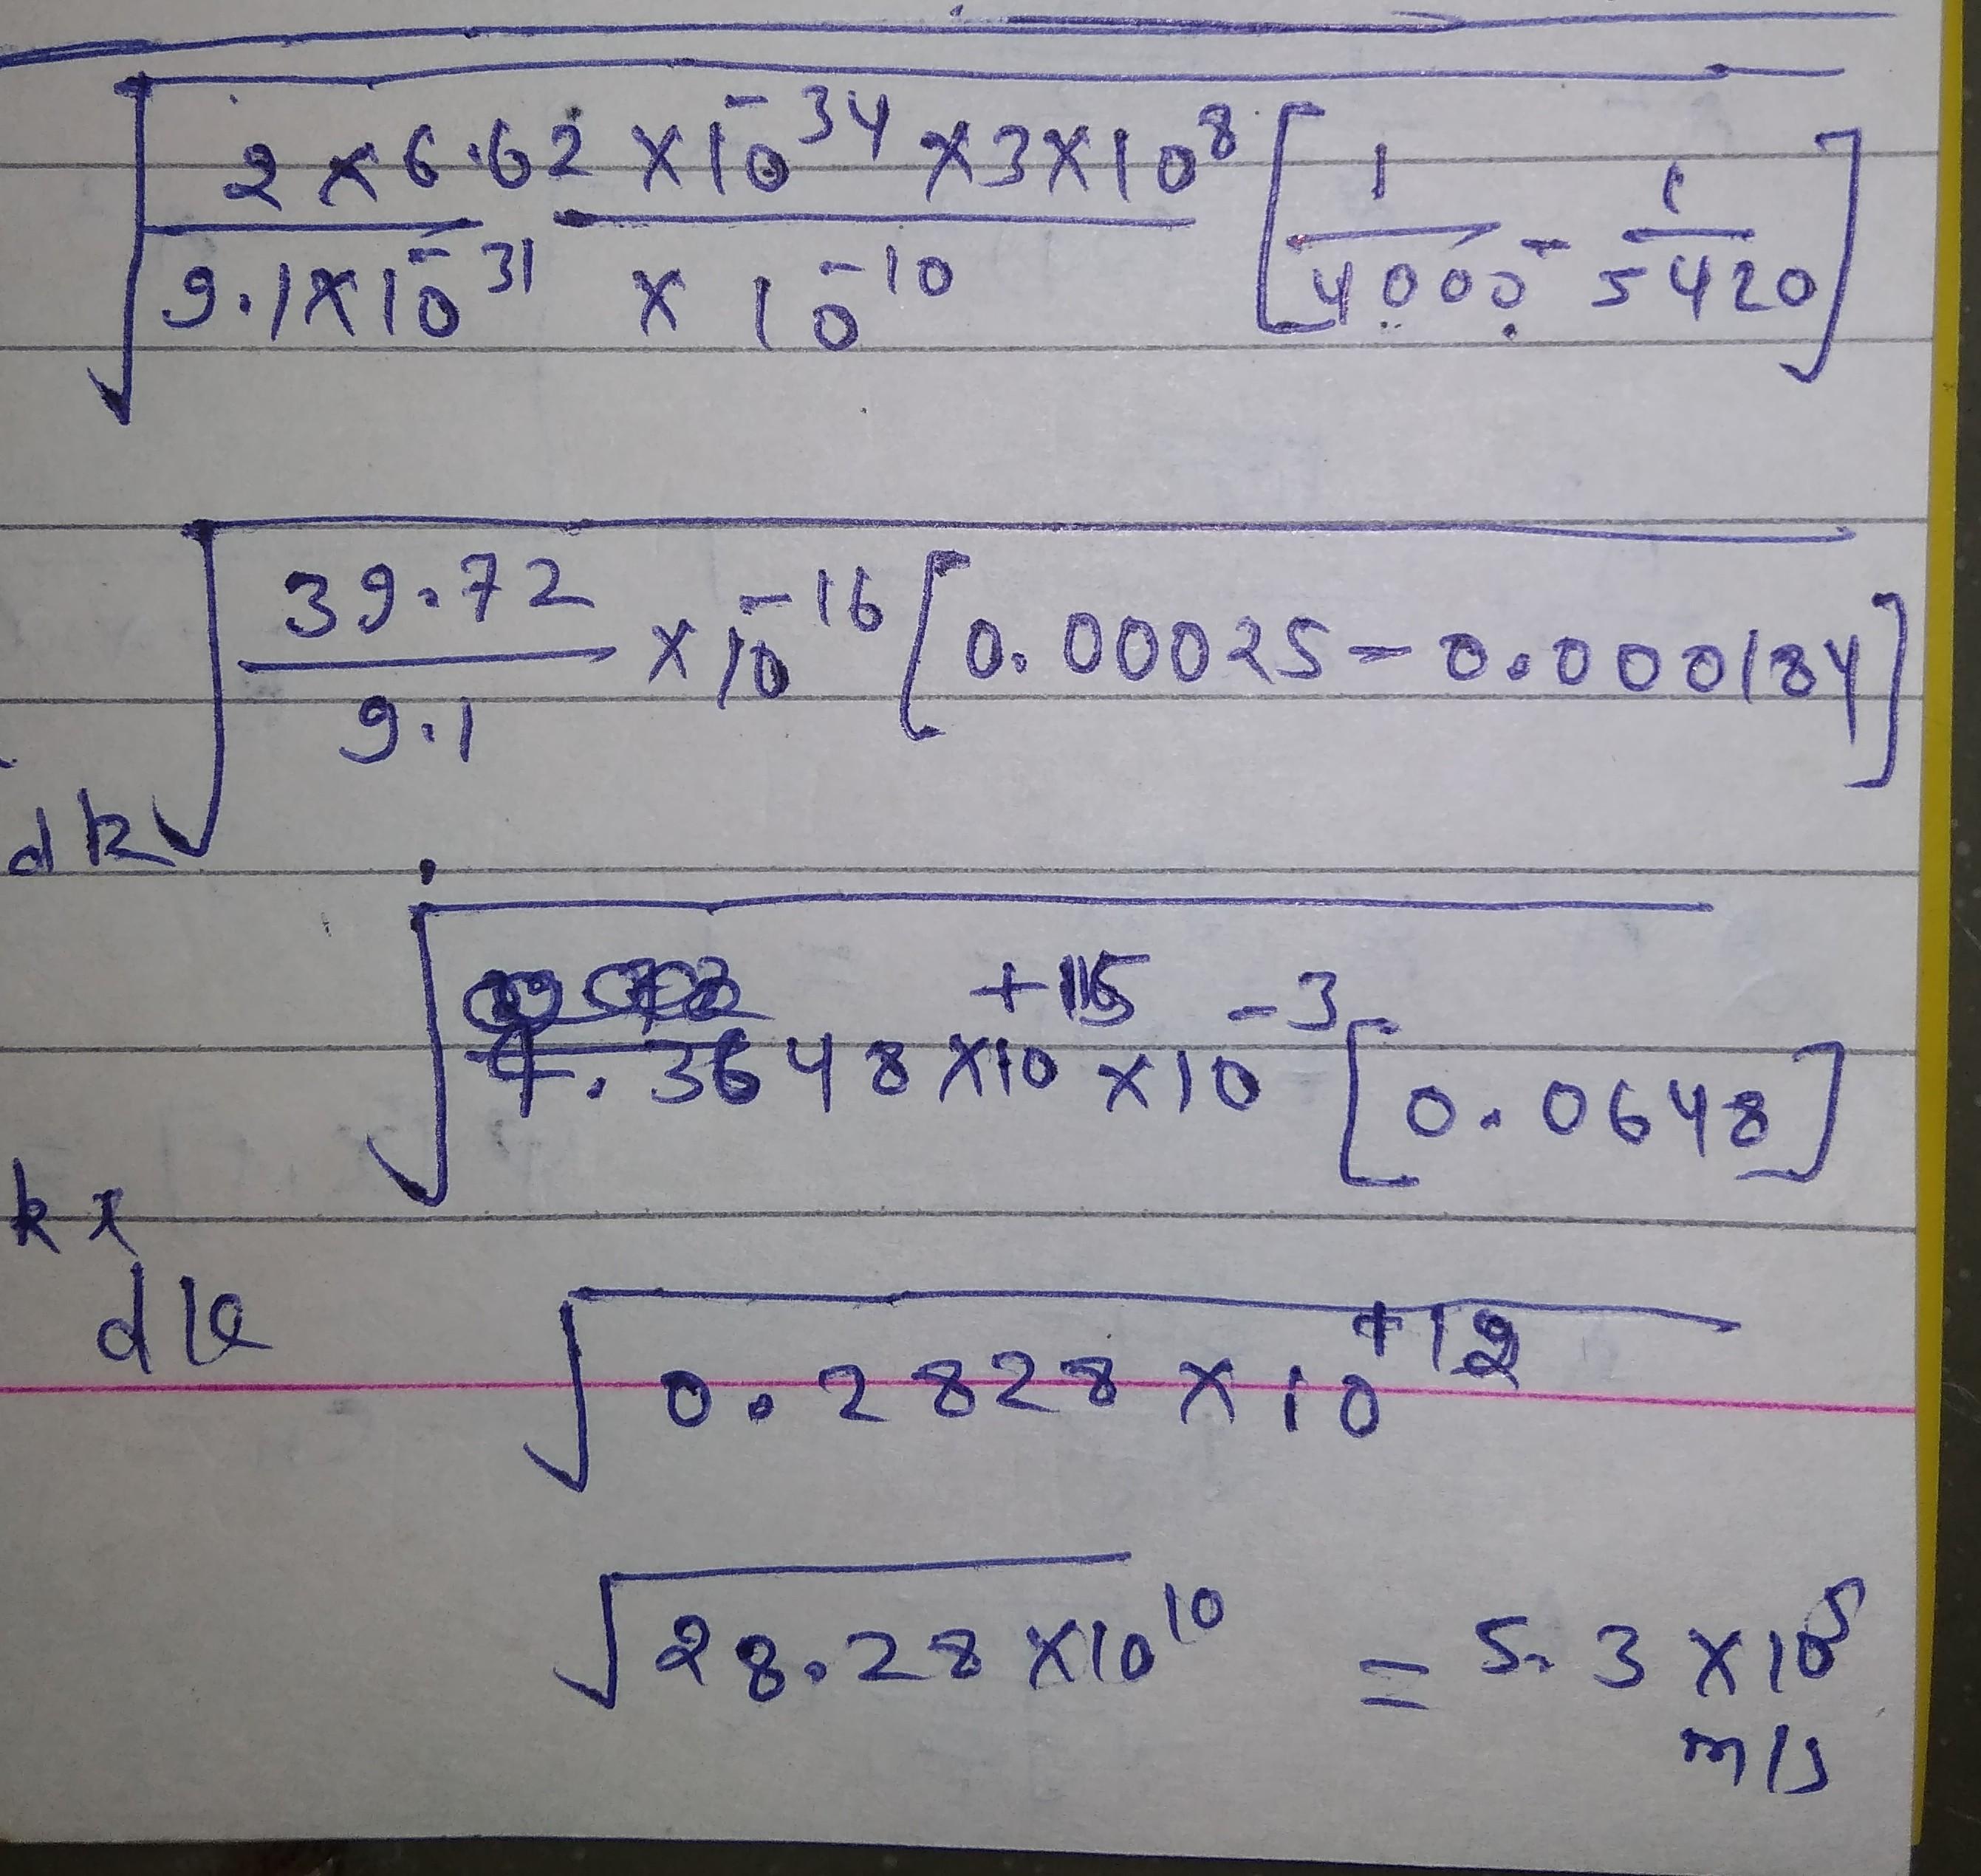 √ 2 × 6.62 × 10^-34 × 3 × 10^8 / 9.1 × 10^-31 × 10^-10 [ 1/4000 - 1/5420 ]
√ 39.72 / 9.1 × 10^-16 [ 0.00025 - 0.000184 ]
dk
√ 4.3648 × 10^+15 × 10^-3 [ 0.0648 ]
kx
dk
√ 0.2828 × 10^+12
√ 28.28 × 10^10 = 5.3 × 10^5
m/s